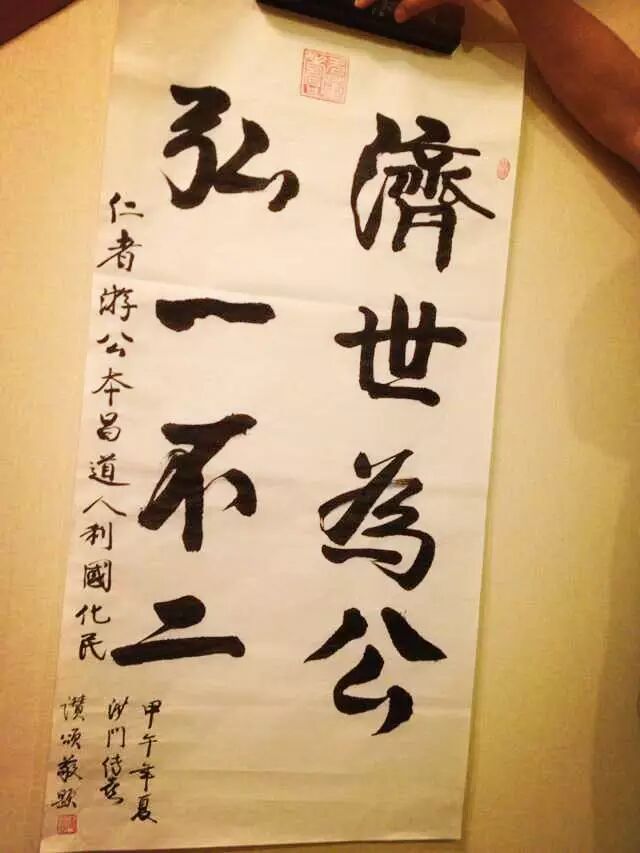 濟世為公
弘一不二
仁者游公本昌道人利國化民
甲午年夏
沙門传喜
讚頌敬題